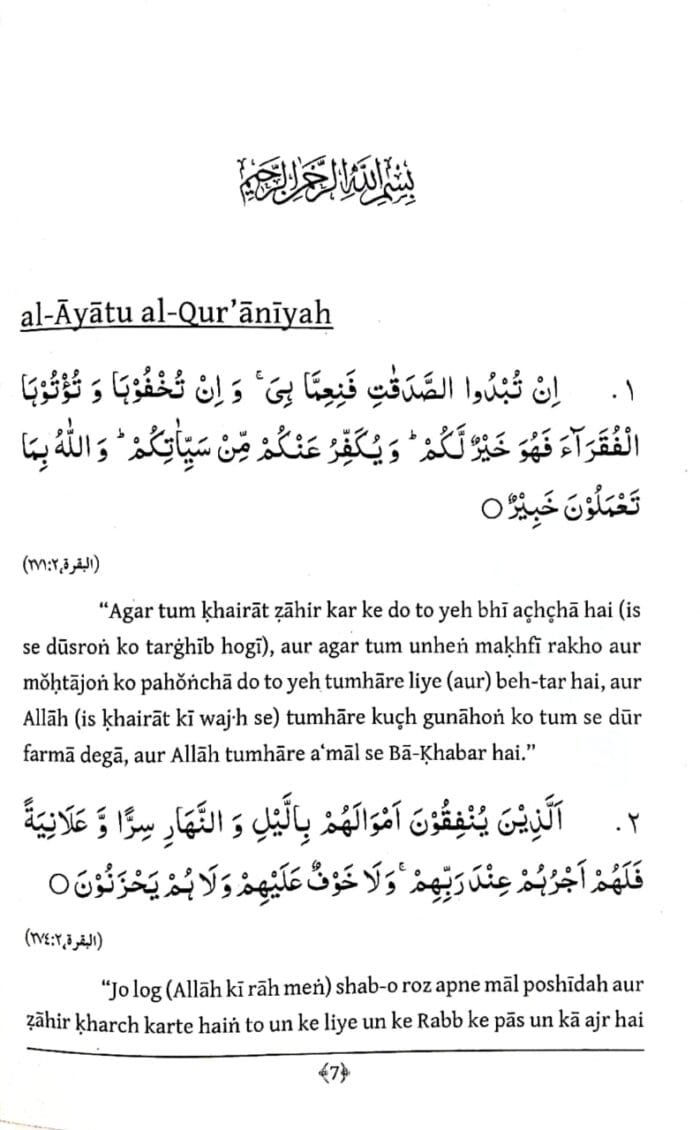 بِسْمِ اللهِ الرَّحْمٰنِ الرَّحِيْمِ
al-Āyātu al-Qur’ānīyah
١. اِنْ تُبْدُوا الصَّدَقٰتِ فَنِعِمَّا هِیَ ۚ وَ اِنْ تُخْفُوْهَا وَ تُؤْتُوْهَا
الْفُقَرَآءَ فَهُوَ خَيْرٌ لَّكُمْ ؕ وَ يُكَفِّرُ عَنْكُمْ مِّنْ سَيِّاٰتِكُمْ ؕ وَ اللهُ بِمَا
تَعْمَلُوْنَ خَبِيْرٌ ○
(البقرة، ٢:٢٧١)
“Agar tum ḳhairāt ẓāhir kar ke do to yeh bhī açhçhā hai (is
se dūsroṅ ko tarġhīb hogī), aur agar tum unheṅ maḳhfī rakho aur
mŏḥtājoṅ ko pahŏṅchā do to yeh tumhāre liye (aur) beh-tar hai, aur
Allāh (is ḳhairāt kī waj·h se) tumhāre kuçh gunāhoṅ ko tum se dūr
farmā degā, aur Allāh tumhāre a‘māl se Bā-Ḳhabar hai.”
٢. اَلَّذِيْنَ يُنْفِقُوْنَ اَمْوَالَهُمْ بِالَّيْلِ وَ النَّهَارِ سِرًّا وَّ عَلَانِيَةً
فَلَهُمْ اَجْرُهُمْ عِنْدَ رَبِّهِمْ ۚ وَلَا خَوْفٌ عَلَيْهِمْ وَلَا هُمْ يَحْزَنُوْنَ ○
(البقرة، ٢:٢٧٤)
“Jo log (Allāh kī rāh meṅ) shab-o roz apne māl poshīdah aur
ẓāhir ḳharch karte haiṅ to un ke liye un ke Rabb ke pās un kā ajr hai
﴾7﴿